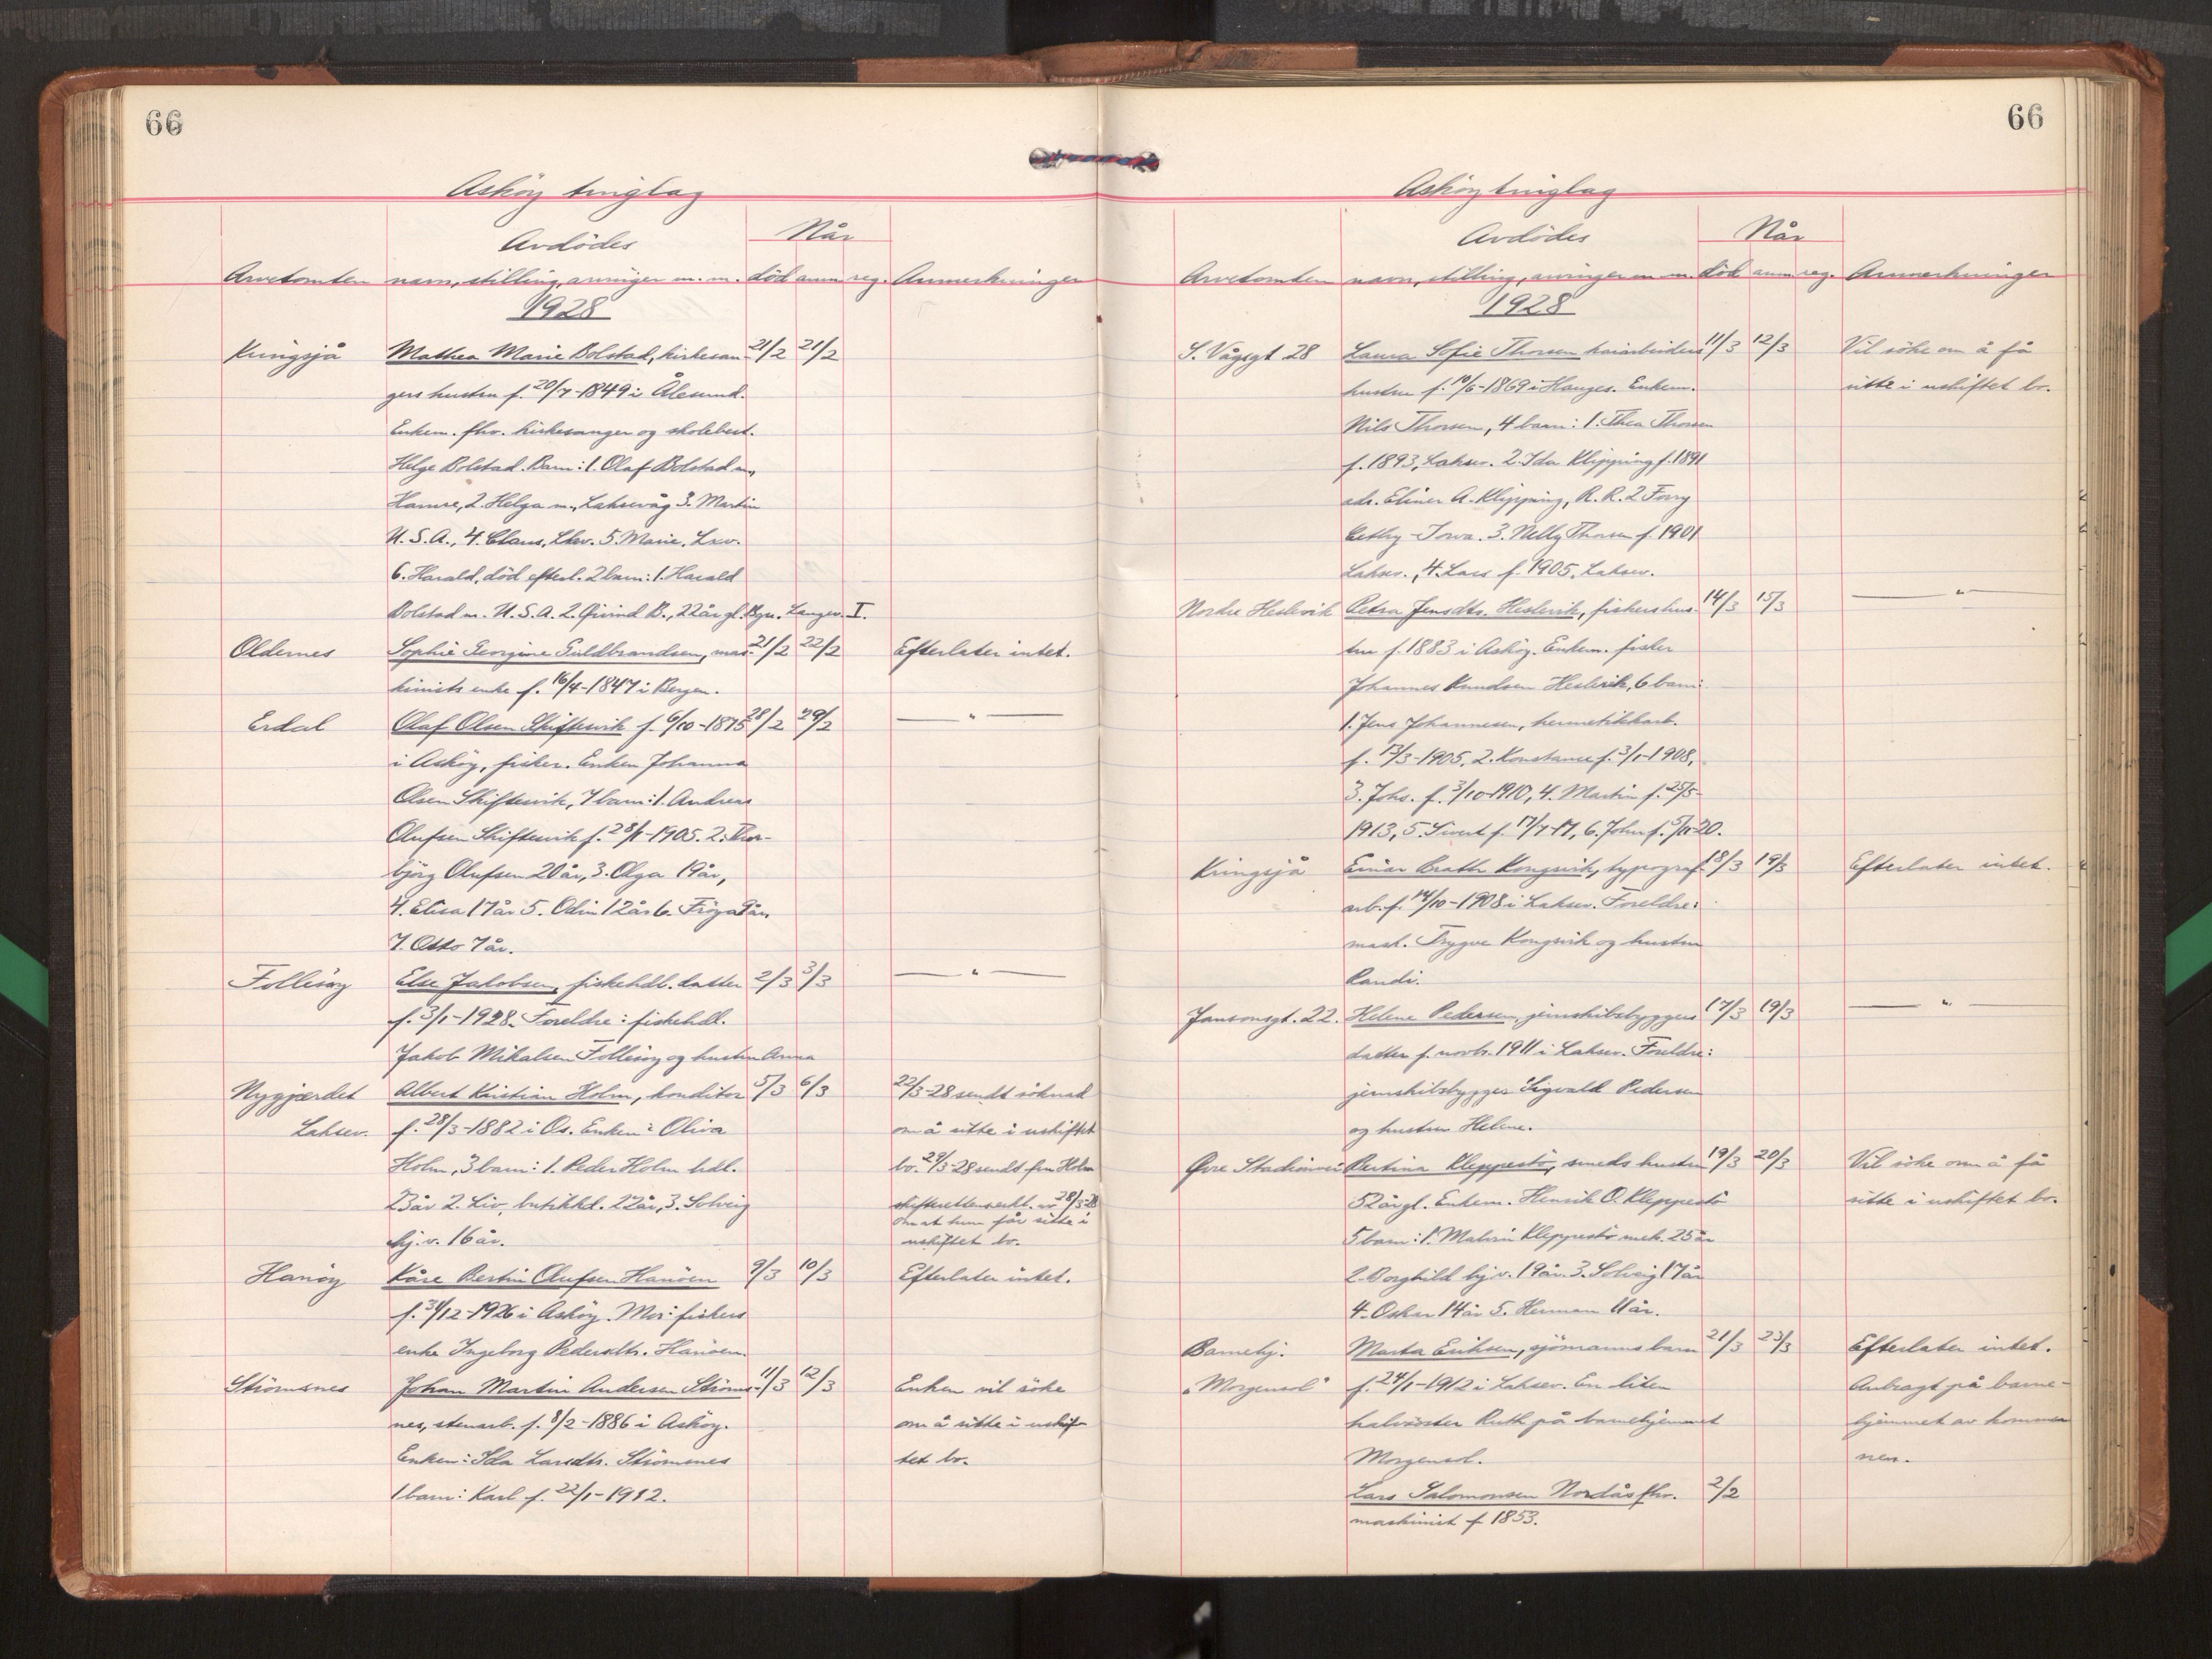 66
Askøy tinglag
Avdødes
Når
Arvetomten navn, stilling, arvinger m. m. død anm. reg. Anmerkninger
1928
Kringsjå Mathea Marie Bolstad, kirkesan- 21/2 21/2
gers hustru f. 20/7-1849 i Ålesund.
Enkem. fhv. kirkesanger og skolebest.
Helge Bolstad. Barn: 1. Olaf Bolstad m.,
Hamre, 2. Helga m., Laksevåg 3. Martin
U.S.A., 4. Claus, Lksv. 5. Marie, Lxv.
6. Harald, død efterl. 2 barn: 1. Harald
Bolstad m. U.S.A. 2. Øivind B., 22 år gl. Bgn. Langev. I.
Oldernes Sophie Georgine Guldbrandsen, mas- 21/2 22/2 Efterlater intet.
kinists enke f. 16/4-1847 i Bergen.
Erdal Olaf Olsen Skiftesvik f. 6/10-1875 28/2 29/2 — " —
i Askøy, fisker. Enken Johanna
Olsen Skiftesvik, 7 barn: 1. Andreas
Olufsen Skiftesvik f. 28/1-1905. 2. Thor-
bjørg Olufsen 20 år, 3. Olga 19 år,
4. Elisa 17 år 5. Odin 12 år 6. Frøya 9 år,
7. Otto 7 år.
Follesøy Else Jakobsen, fiskehdl. datter 2/3 3/3 — " —
f. 3/1-1928. Foreldre: fiskehdl.
Jakob Mikalsen Follesøy og hustru Anna
Nygjærdet Albert Kristian Holm, konditor 5/3 6/3 22/3-28 sendt söknad
Laksev. f. 28/3-1882 i Os. Enken: Oliva om å sitte i uskiftet
Holm, 3 barn: 1. Peder Holm hdl. bo. 29/3-28 sendt fru Holm
23 år 2. Liv, butikkd. 22 år, 3. Solveig skifterettens erkl. av 28/3-28
hj. v. 16 år. om at hun får sitte i
uskiftet bo.
Hanøy Kåre Bertin Olufsen Hanøen 9/3 10/3 Efterlater intet.
f. 31/12-1926 i Askøy. Mor: fiskers
enke Ingeborg Pedersdtr. Hanøen.
Strömsnes Johan Martin Andersen Ströms- 11/3 12/3 Enken vil söke
nes, stenarb. f. 8/2-1886 i Askøy. om å sitte i uskif-
Enken: Ida Larsdtr. Strömsnes tet bo.
1 barn: Karl f. 22/1-1912.
66
Askøy tinglag
Avdødes
Når
Arvetomten navn, stilling, arvinger m. m. død anm. reg. Anmerkninger
1928
S. Vågsgt 28 Laura Sofie Thorsen kaiarbeiders 11/3 12/3 Vil söke om å få
hustru f. 10/6-1869 i Hauges. Enkem. sitte i uskiftet bo.
Nils Thorsen, 4 barn: 1. Thea Thorsen
f. 1893, Laksev. 2. Ida Klipping f. 1891
adr. Elmer A. Klipping, R. R. 2
Iowa. 3. Nelly Thorsen f. 1901
Laksev., 4. Lars f. 1905, Laksev.
Nordre Heslevik Petra Jensdtr. Heslevik, fiskers hus- 14/3 15/3 — " —
tru f. 1883 i Askøy. Enkem. fisker
Johannes Knudsen Heslevik, 6 barn:
1. Jens Johannesen, hermetikkarb.
f. 13/3-1905. 2. Konstance f. 3/1-1908,
3. Johs. f. 3/10-1910, 4. Martin f. 25/5-
1913, 5. Sivert f. 17/7-17, 6. John f. 5/11-20.
Kringsjå Einar Brath Kongsvik, typograf- 18/3 19/3 Efterlater intet.
arb. f. 14/10-1908 i Laksev. Foreldre:
mask. Trygve Kongsvik og hustru
Randi.
Jansonsgt. 22. Helene Pedersen, jernskibsbyggers 17/3 19/3 — " —
datter f. novbr. 1911 i Laksev. Foreldre:
jernskibsbygger Sigvald Pedersen
og hustru Helene.
Øvre Stadionvei Bertina Kleppestö, smeds hustru 19/3 20/3 Vil söke om å få
52 år gl. Enkem. Henrik O. Kleppestö sitte i uskiftet bo.
5 barn: 1. Malvin Kleppestö mek. 25 år
2. Borghild hj. v. 19 år. 3. Solveig 17 år
4. Oskar 14 år 5. Herman 11 år.
Barnehj. Marta Eriksen, sjömanns barn 21/3 23/3 Efterlater intet.
„Morgensol" f. 24/1-1912 i Laksev. En liten Anbragt på barne-
halvsöster Ruth på barnehjemmet hjemmet av kommu-
Morgensol. nen.
Lars Salomonsen Nordås fhv. 2/2
maskinist f. 1853.